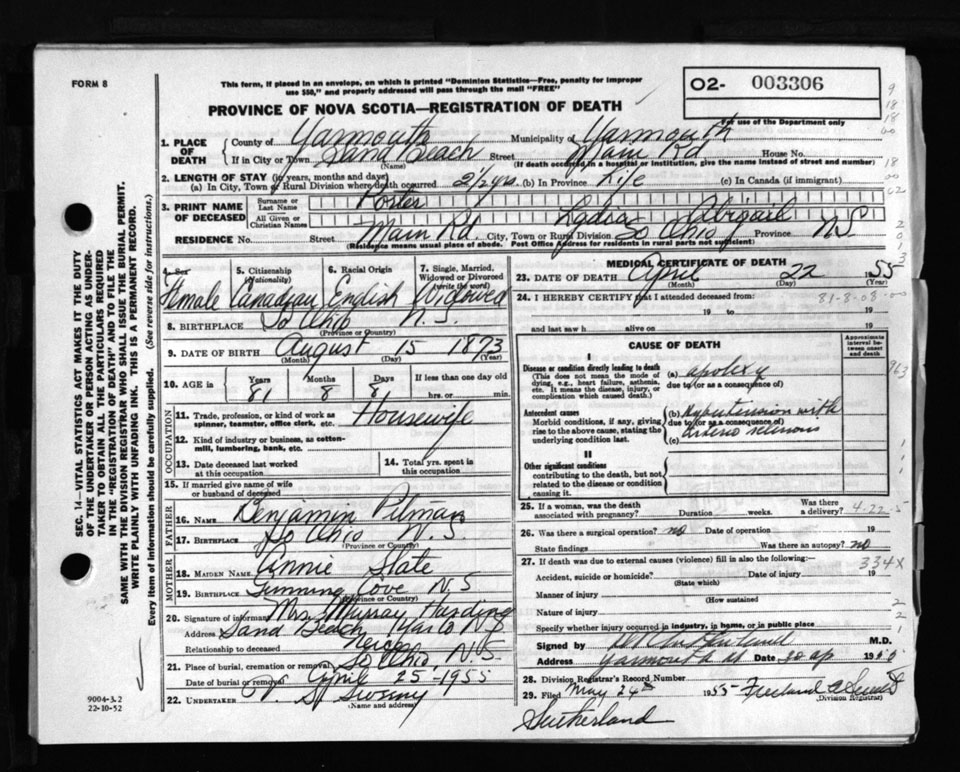 FORM 8
This form, if placed in an envelope, on which is printed "Dominion Statistics—Free, penalty for improper
use $50," and properly addressed will pass through the mail "FREE"
O2- 003306
For use of the Department only
PROVINCE OF NOVA SCOTIA—REGISTRATION OF DEATH
1. PLACE OF DEATH
County of Yarmouth Municipality of Yarmouth
If in City or Town Sand Beach Street Main Rd House No.
(Name) (If death occurred in a hospital or institution, give the name instead of street and number)
2. LENGTH OF STAY (in years, months and days)
(a) In City, Town or Rural Division where death occurred 2 1/2 yrs. (b) In Province Life (c) In Canada (if immigrant)
3. PRINT NAME OF DECEASED
Surname or Last Name Porter
All Given or Christian Names Lydia Abigail
RESIDENCE No. Street Main Rd. City, Town or Rural Division So Ohio Province N.S.
(Residence means usual place of abode. Post Office Address for residents in rural parts not sufficient)
4. Sex 5. Citizenship (Nationality) 6. Racial Origin 7. Single, Married, Widowed or Divorced (write the word)
Female Canadian English Widowed
8. BIRTHPLACE So Ohio N.S.
(Province or Country)
9. DATE OF BIRTH August 15 1873
(Month) (Day) (Year)
10. AGE in Years Months Days If less than one day old
81 8 8 hrs. or min.
OCCUPATION
11. Trade, profession or kind of work as
spinner, teamster, office clerk, etc. Housewife
12. Kind of industry or business, as cotton-
mill, lumbering, bank, etc.
13. Date deceased last worked
at this occupation
14. Total yrs. spent in
this occupation
15. If married give name of wife
or husband of deceased
FATHER
16. NAME Benjamin Pitman
17. BIRTHPLACE So Ohio N.S.
(Province or Country)
MOTHER
18. MAIDEN NAME Annie State
19. BIRTHPLACE Gunning Cove N.S
(Province or Country)
20. Signature of informant Mrs Murray Harding
Address Sand Beach Yar Co N.S
Relationship to deceased Neice
21. Place of burial, cremation or removal So Ohio, N.S.
Date of burial or removal April 25-1955
22. UNDERTAKER V. S. Sweeny
(Name and address)
MEDICAL CERTIFICATE OF DEATH
23. DATE OF DEATH April 22 1955
(Month) (Day)
24. I HEREBY CERTIFY that I attended deceased from: 81-8-08-00
19 to 19
and last saw h alive on 19
CAUSE OF DEATH
Approximate interval between onset and death
I
Disease or condition directly leading to death
(This does not mean the mode of
dying, e.g., heart failure, asthenia,
etc. It means the disease, injury, or
complication which caused death.)
(a) apolexy
due to (or as a consequence of)
Antecedent causes
Morbid conditions, if any, giving
rise to the above cause, stating the
underlying condition last.
(b) Hypertension with
due to (or as a consequence of)
(c) arterio sclerosis
II
Other significant conditions
contributing to the death, but not
related to the disease or condition
causing it.
25. If a woman, was the death
associated with pregnancy? Duration weeks. Was there a delivery? 4-22-5
26. Was there a surgical operation? no Date of operation 19
State findings Was there an autopsy? no
27. If death was due to external causes (violence) fill in also the following: 334X
Accident, suicide or homicide? Date of injury 19
(State which)
Manner of injury
(How sustained
Nature of injury
Specify whether injury occurred in industry, in home, or in public place
Signed by M.D.
Address Yarmouth Date 30 ap 19
28. Division Registrar's Record Number
29. Filed May 24th 1955
(Division Registrar)
Sutherland
9004-3.2
22-10-52
SEC. 14—VITAL STATISTICS ACT MAKES IT THE DUTY
OF THE UNDERTAKER OR PERSON ACTING AS UNDER-
TAKER TO OBTAIN ALL THE PARTICULARS REQUIRED
IN THE "REGISTRATION OF DEATH" AND TO FILE THE
SAME WITH THE DIVISION REGISTRAR WHO SHALL ISSUE THE BURIAL PERMIT.
WRITE PLAINLY WITH UNFADING INK. THIS IS A PERMANENT RECORD.
Every item of information should be carefully supplied. (See reverse side for instructions.)